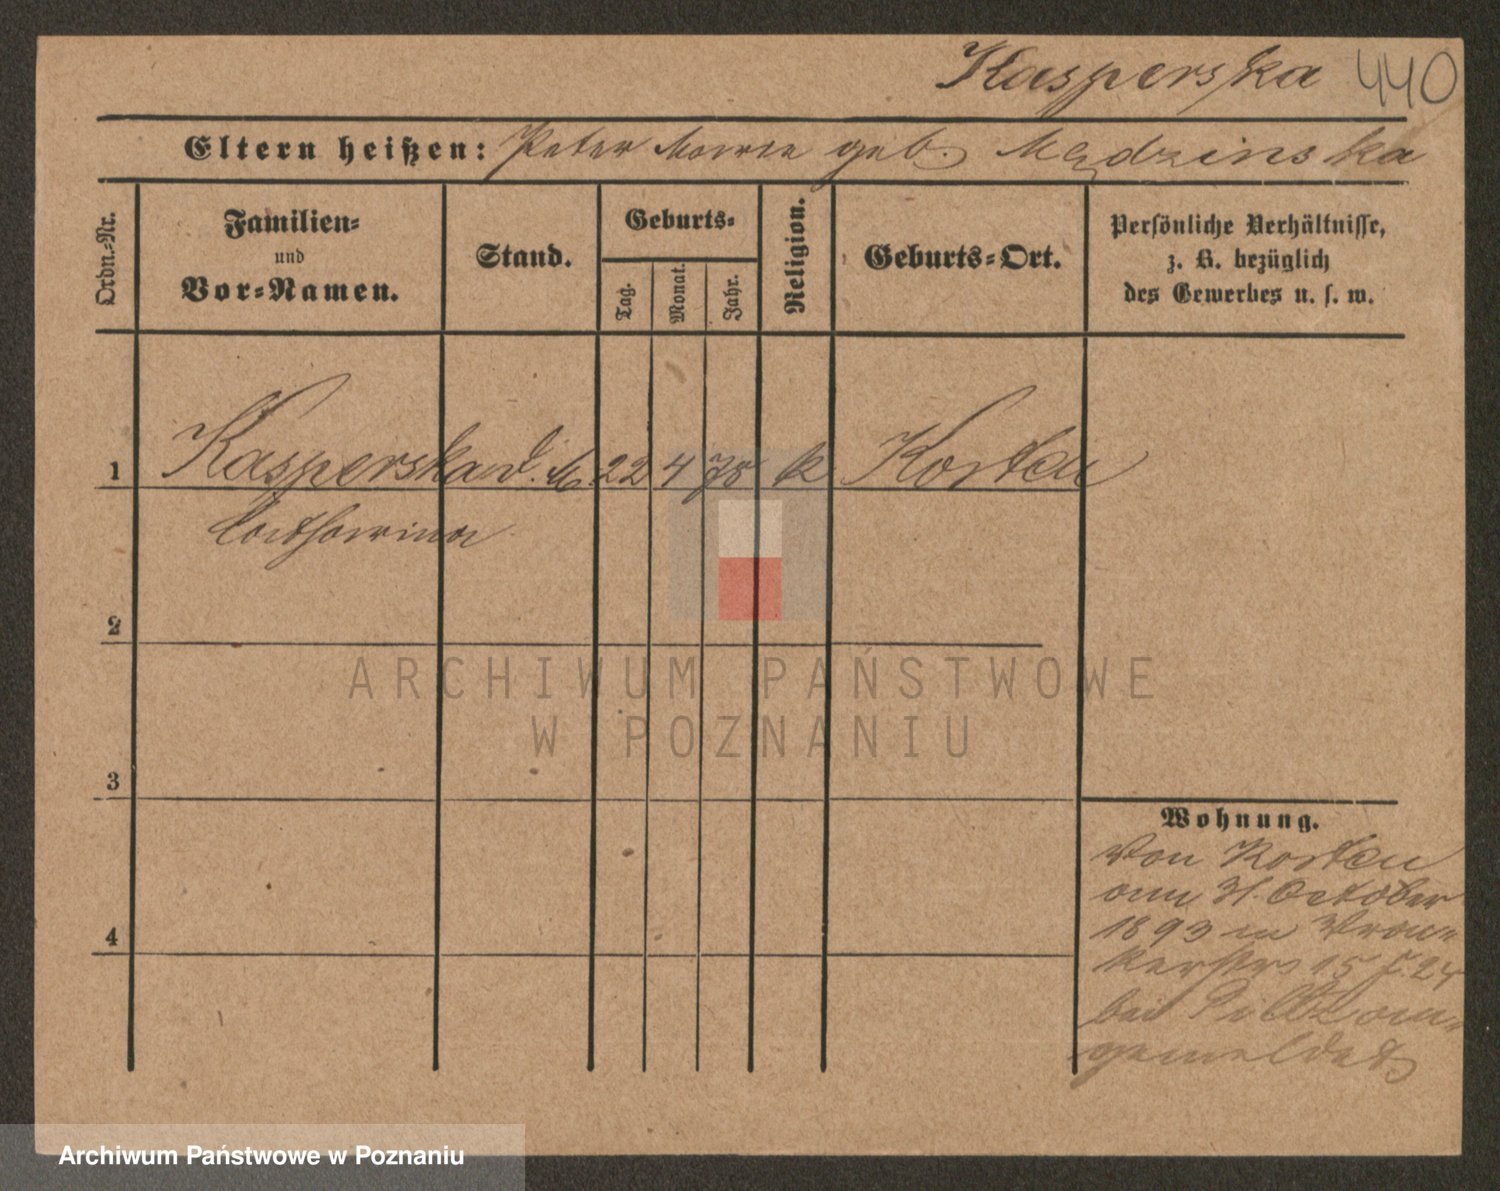 Kasperska 440
Eltern heißen: Peter Marie geb. Mendzinska
Ordn.-Nr.
Familien-
und
Vor-Namen.
Stand.
Geburts-
Tag.
Monat.
Jahr.
Religion.
Geburts-Ort.
Persönliche Verhältnisse,
z. B. bezüglich
des Gewerbes u. s. w.
1 Kasperska d. M. 22 4 78 k Kosten
Catharina
2
3
4
Wohnung.
Von Kosten
am 31. October
1893 in Wron-
kerstr 15
bei an-
gemeldet
ARCHIWUM PAŃSTWOWE
W POZNANIU
Archiwum Państwowe w Poznaniu